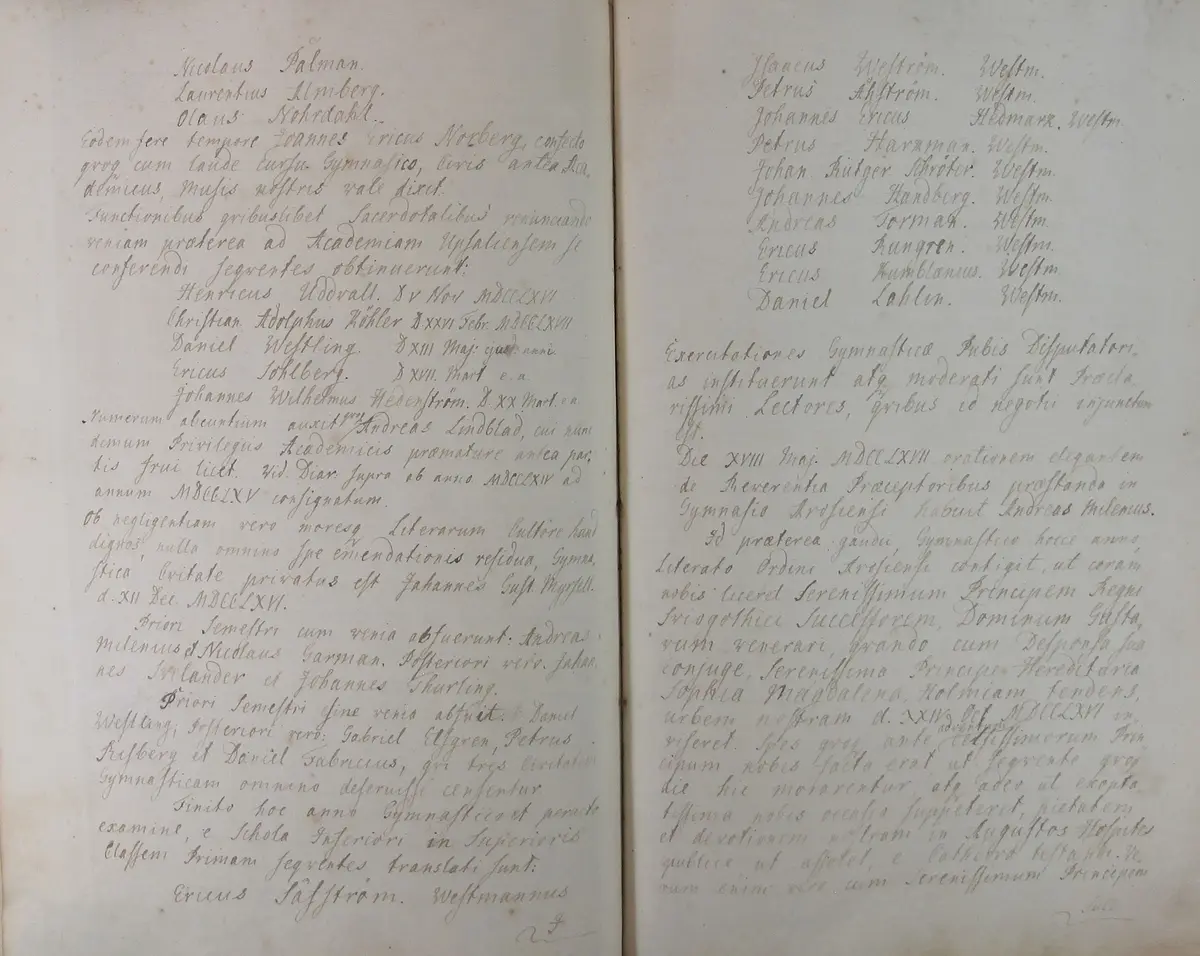 Nicolaus Pålman.
Laurentius Almberg.
Olaus Nohrdahl.
Eodem fere tempore Joannes Ericus Norberg, confecto
qvoq cum laude cursu Gymnasico, Civis antea Aca,
demicus, Musis nostris vale dixit.
Functionibus qvibuslibet Sacerdotalibus renunciando
veniam præterea ad Academiam Upsaliensem se
conferendi seqventes obtinuerunt:
Henricus Uddvall. D V Nov MDCCLXVI
Christian Adolphus Köhler D XXVI Febr. MDCCLXVII
Daniel Westling. D XIII Maj. ejusd anni
Ericus Sohlberg. D XVII. Mart e. a.
Johannes Wilhelmus Hedenström. D XX Mart.
Numerum abeuntium auxit Andreas Lindblad, cui nunc
demum Privilegiis Academicis præmature antea par,
tis frui licet. vid. Diar. supra ob anno MDCCLXIV ad
annum MDCCLXV consignatum.
Ob negligentiam vero moresq Literarum Cultore haud
dignos, nulla omnino spe emendationis residua, Gymna,
stica Civitate privatus est Johannes Gust Myrsell.
d. XII Dec MDCCLXVI.
Priori Semestri cum venia abfuerunt: Andreas
Milenius et Nicolaus Garman. Posteriori vero: Johan
nes Svelander et Johannes Thurling.
Priori Semestri sine venia abfuit. Daniel
Westling; Posteriori vero: Gabriel Elfgren, Petrus
Risberg et Daniel Fabricius, qvi tres Civitatem
Gymnasticam omnino deseruisse censentur
Finito hoc anno Gymnastico et peracto
examine, e Schola Inferiori in Superioris
Classem Primam seqventes translati sunt:
Ericus Säfström. Westmannus
Isaacus Weström. Westm.
Petrus Åhström. Westm.
Johannes Ericus Hedmark. Westm.
Petrus Harnman. Westm.
Johan Rutger Schröter. Westm.
Johannes Handberg. Westm.
Andreas Torman. Westm.
Ericus Rungren. Westm.
Ericus Humblonius. Westm.
Daniel Lahlin. Westm.
Exercitationes Gymnasticæ Pubis Disputatori,
as instituerunt atq moderati sunt Præcla,
rissimi Lectores, qvibus id negotii injunctum
est.
Die XVIII Maj. MDCCLXVII orationem elegantem
de Reverentia Præceptoribus præstanda in
Gymnasio Arosiensi habuit Andreas Milenius.
Id præterea gaudii Gymnastico hocce anno,
Literato Ordini Arosiensi contigit, ut coram
nobis liceret Serenissimum Principem Regni
Sviogothici Successorem, Dominum Gusta,
vum venerari, qvando cum Desponsa sua
conjuge, Serenissima Principe Hereditaria
Sophia Magdalena, Holmiam tendens,
urbem nostram d. XXIV Oct. MDCCLXVI in,
viseret. Spes qvoq ante adventum Celsissimorum Prin
cipum nobis facta erat, ut seqvente qvoq
die hic morarentur atq adeo ut exopta
tissima nobis occasio suppeteret, pietatem
et devotionem nostram in Augustos Hospites
publice ut assolet, e Cathedra testandi. Ve,
rum enim vero cum Serenissimum Principem